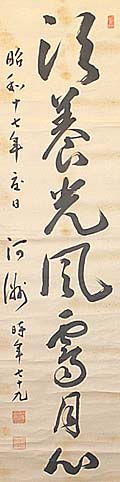 須養光風霽月心
昭和十七年夏日
河洲時年七十九